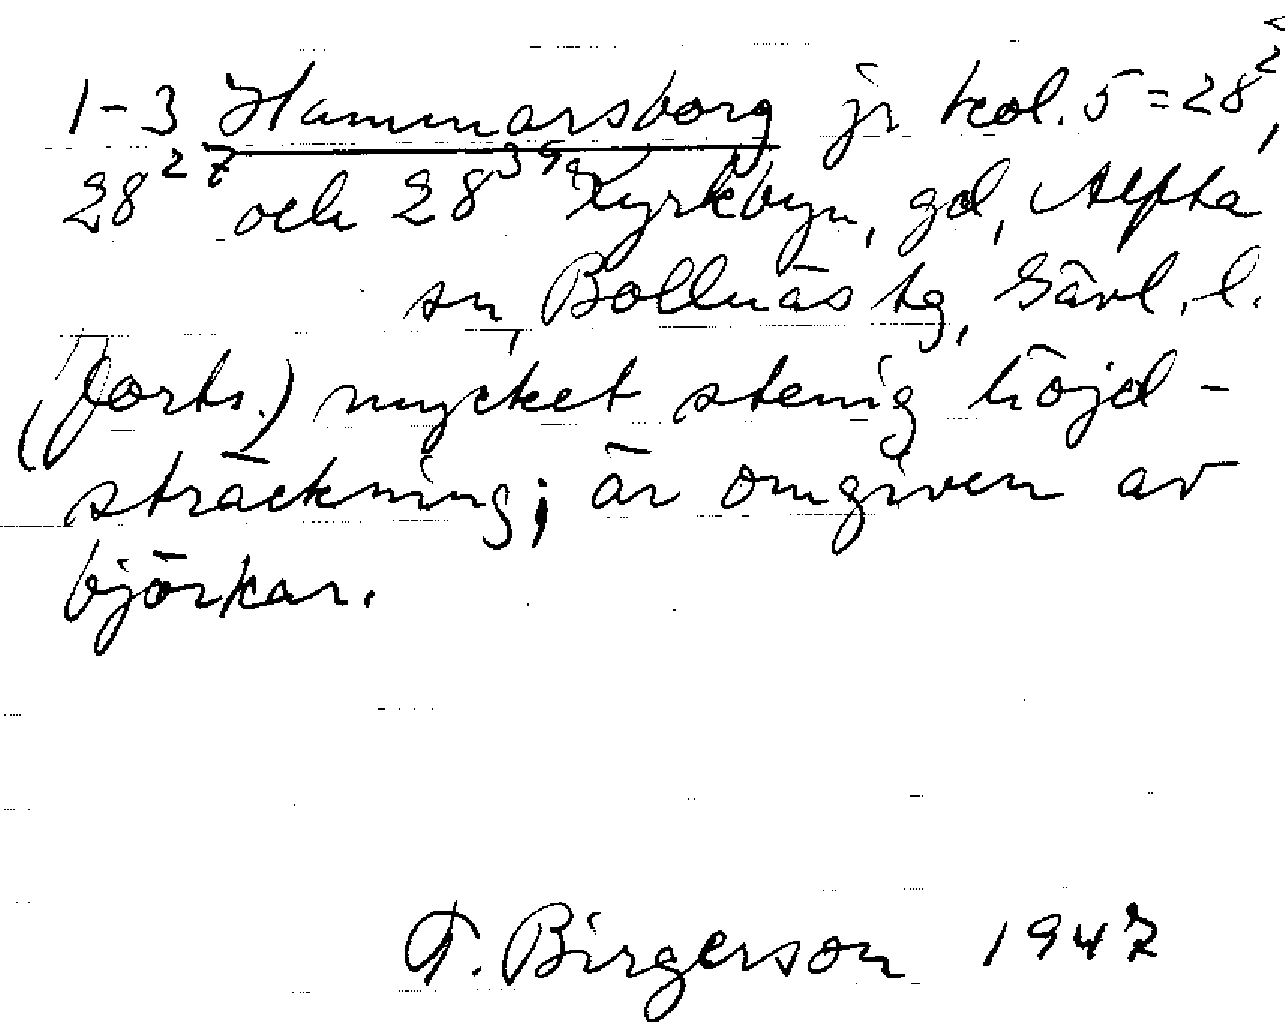 1-3 Hammarsborg jr kol. 5 = 28²,
28²⁷ och 28³⁹ Kyrkbyn, gd, Alfta
sn, Bollnäs tg, Gävl. l.
(forts.) mycket stenig höjd-
sträckning; är omgiven av
björkar.
F. Birgerson 1947